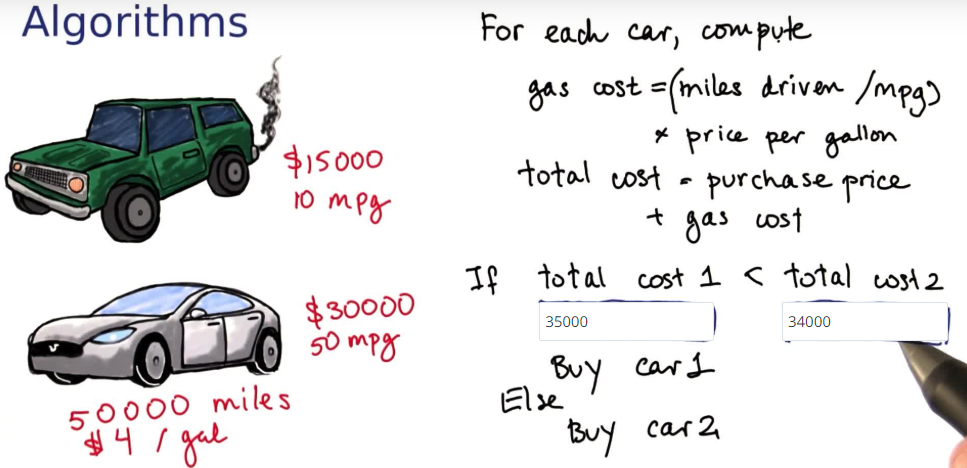 Algorithms
$15000
10 mpg
$30000
50 mpg
50000 miles
$4 / gal
For each car, compute
gas cost = (miles driven / mpg)
* price per gallon
total cost = purchase price
+ gas cost
If total cost 1 < total cost 2
35000 34000
Buy car 1
Else
Buy car 2